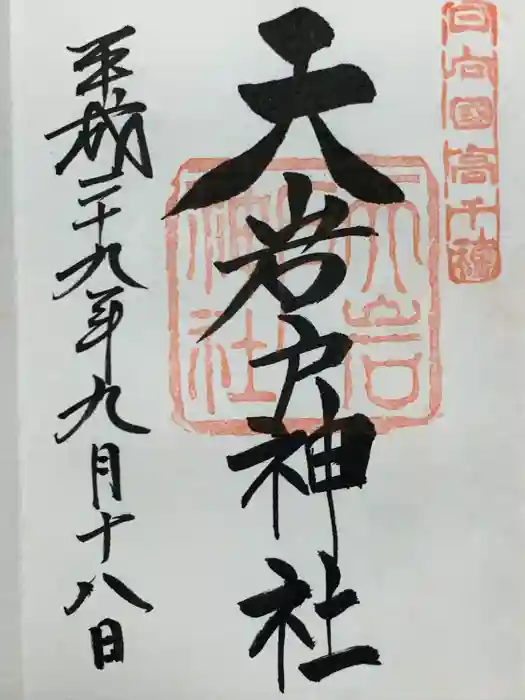 日向国高千穂
天岩戸神社
天岩戸神社
平成二十九年九月十八日